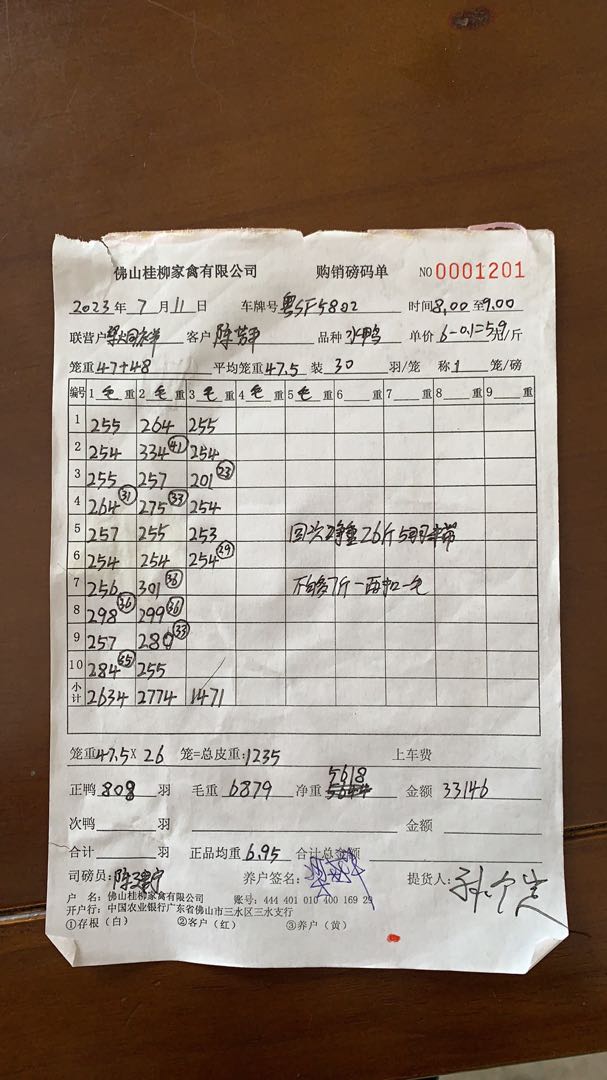 佛山桂柳家禽有限公司 购销磅码单 NO 0001201
2023年 7月 11日 车牌号 粤SF5802 时间 8,00至9.00
联营户 客户 陈芳平 品种 水鸭 单价 6-0.1=5.9元/斤
笼重 47+48 平均笼重 47.5 装 30 羽/笼 称 1 笼/磅
编号 1 毛 重 2 毛 重 3 毛 重 4 毛 重 5 毛 重 6 重 7 重 8 重 9 重
1 255 264 255
2 254 334 41 254
3 255 257 201 23
4 264 31 275 33 254
5 257 255 253 回头净重26斤5羽
6 254 254 254 29
7 256 301 36 不够7斤一两扣一毛
8 298 36 299 36
9 257 280 33
10 284 35 255
小计 2634 2774 1471
笼重 47.5 X 26 笼=总皮重: 1235 上车费
5618
正鸭 808 羽 毛重 6879 净重 5644 金额 33146
次鸭 羽 金额
合计 羽 正品均重 6.95 合计总金额
司磅员: 养户签名: 提货人:
户 名: 佛山桂柳家禽有限公司 账号: 444 401 010 400 169 29
开户行: 中国农业银行广东省佛山市三水区三水支行
①存根（白） ②客户（红） ③养户（黄）